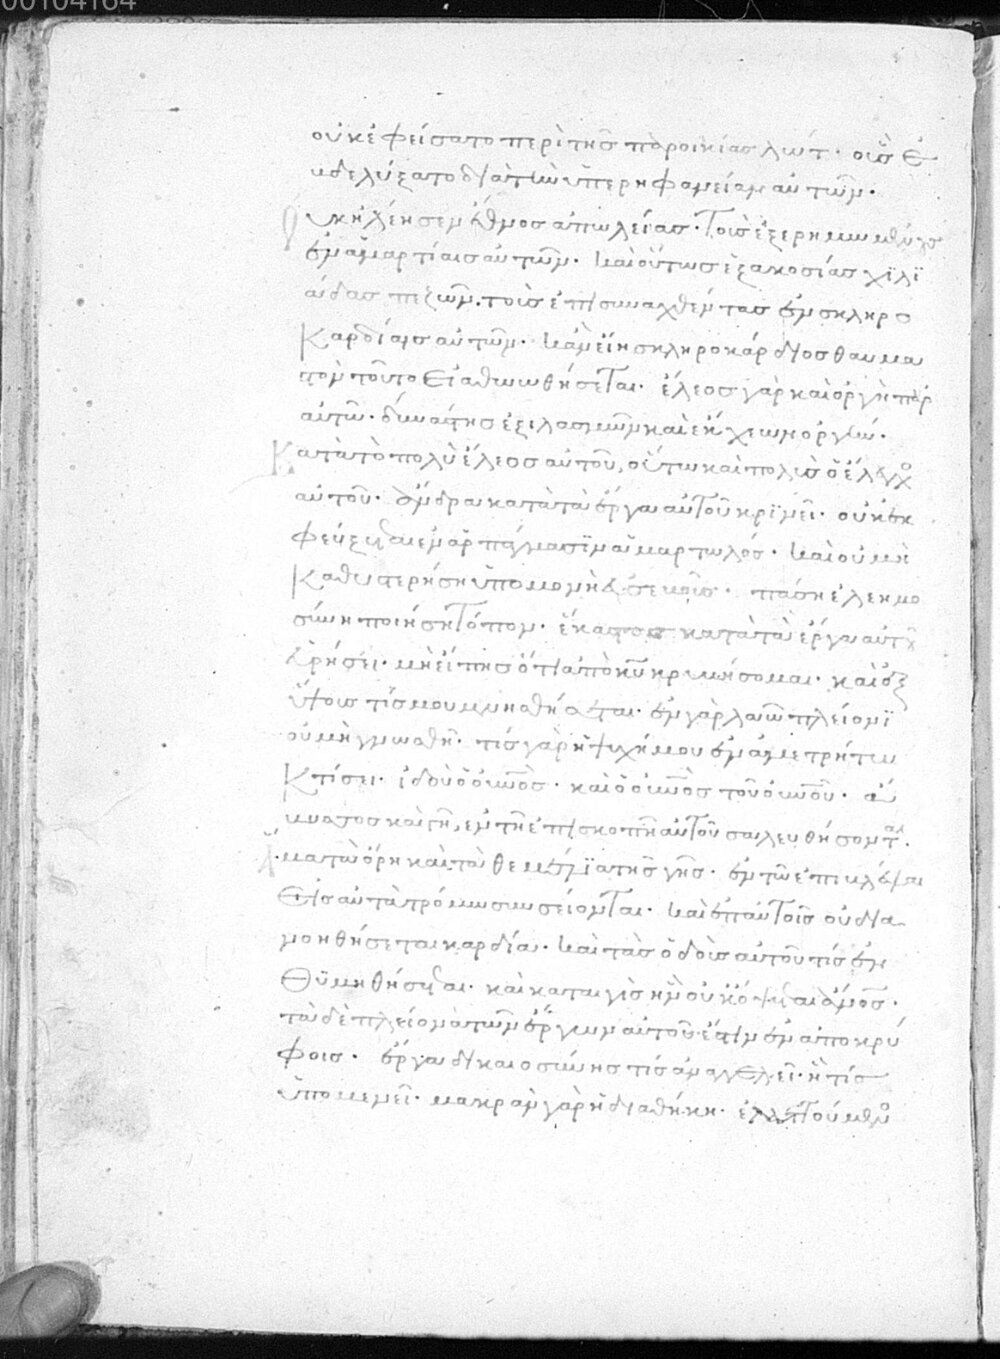 00104164
οὐκ ἐφείσατο περὶ τῆς παροικίας λώτ· οὓς ἐ
βδελύξατο διὰ τὴν ὑπερηφανείαν αὐτῶν·
Οὐκ ἠλέησεν ἔθνος ἀπωλείας· τοὺς ἐξερημωμένους
ἐν ἁμαρτίαις αὐτῶν· καὶ οὕτως ἑξακοσίας χιλι
άδας πεζῶν. τοὺς ἐπισυναχθέντας ἐν σκληρο
Καρδίαις αὐτῶν· κἂν εἴη σκληροκάρδιος θαυμα
στὸν τοῦτο εἰ ἀθωωθήσεται· ἔλεος γὰρ καὶ ὀργὴ παρ
αὐτῶ· δυνάστης ἐξιλασμῶν καὶ ἐκχέων ὀργήν·
Κατὰ τὸ πολὺ ἔλεος αὐτοῦ, οὕτω καὶ πολὺς ὁ ἔλεγχος
αὐτοῦ· ἄνδρα κατὰ τὰ ἔργα αὐτοῦ κρινεῖ· οὐκ ἐκ
φεύξεται ἐν ἁρπάγμασιν ἁμαρτωλός· καὶ οὐ μὴ
Καθυστερήση ὑπομονὴ εὐσεβοῦς· πάση ἐλεημο
σύνη ποιήση τόπον· ἕκαστος κατὰ τὰ ἔργα αὐτοῦ
εὑρήσει· μὴ εἴπης ὅτι ἀπὸ κυ κρυβήσομαι· καὶ ἐξ
ὕψους τίς μου μνησθήσεται· ἐν γὰρ λαῶ πλείονι
οὐ μὴ γνωσθῶ· τίς γὰρ ἡ ψυχή μου ἐν ἀμετρήτω
Κτίσει· ἰδοὺ ὁ οὐνος· καὶ ὁ οὐνος τοῦ οὐνοῦ· ἄ
βυσσος καὶ γῆ, ἐν τῆ ἐπισκοπῆ αὐτοῦ σαλευθήσονται·
Ἅμα τὰ ὄρη καὶ τὰ θεμέλια τῆς γῆς· ἐν τῶ ἐπιβλέψαι
εἰς αὐτὰ τρόμω συσσείονται· καὶ ἐπ αὐτοῖς οὐ δια
νοηθήσεται καρδία· καὶ τὰς ὁδοὺς αὐτοῦ τίς ἐν
θυμηθήσεται· καὶ καταιγὶς ἣν οὐκ ὄψεται ἄνος·
τὰ δὲ πλείονα τῶν ἔργων αὐτοῦ ἐστιν ἐν ἀποκρύ
φοις· ἔργα δικαιοσύνης τίς ἀναγγελεῖ· ἢ τίς
ὑπομενεῖ· μακρὰν γὰρ ἡ διαθήκη·